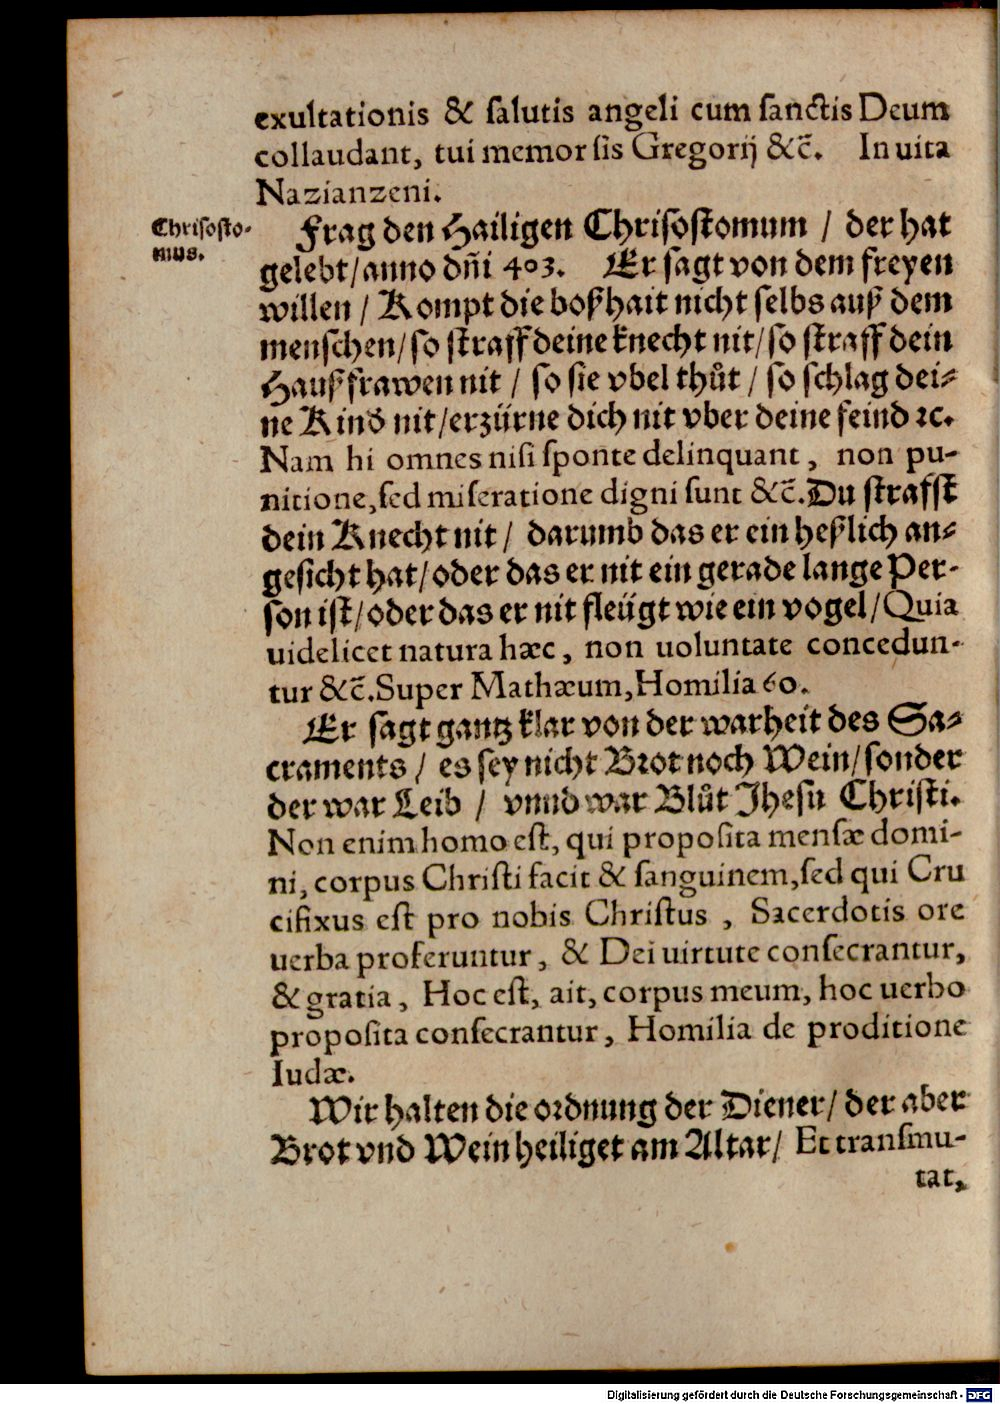 exultationis & ſalutis angeli cum ſanctis Deum
collaudant, tui memor ſis Gregorij &c̃. In uita
Nazianzeni.
Chriſoſto-
mus.
Frag den Hailigen Chriſoſtomum / der hat
gelebt/anno dñi 403. Er ſagt von dem freyen
willen / Kompt die boßhait nicht ſelbs auß dem
menſchen/ſo ſtraff deine knecht nit/ſo ſtraff dein
Haußfrawen nit / ſo ſie vbel thůt / ſo ſchlag dei-
ne Kind nit/erzürne dich nit vber deine feind ꝛc.
Nam hi omnes niſi ſponte delinquant, non pu-
nitione,ſed miſeratione digni ſunt &c̃.Du ſtrafſt
dein Knecht nit / darumb das er ein heßlich an-
geſicht hat/oder das er nit ein gerade lange Per-
ſon iſt/oder das er nit fleügt wie ein vogel/Quia
uidelicet natura hæc, non uoluntate concedun-
tur &c̃.Super Mathæum,Homilia 60.
Er ſagt gantz klar von der warheit des Sa-
craments / es ſey nicht Brot noch Wein/ſonder
der war Leib / vnnd war Blůt Jheſu Chriſti.
Non enim homo eſt, qui propoſita menſæ domi-
ni, corpus Chriſti facit & ſanguinem,ſed qui Cru
cifixus eſt pro nobis Chriſtus, Sacerdotis ore
uerba proferuntur, & Dei uirtute conſecrantur,
& gratia, Hoc eſt, ait, corpus meum, hoc uerbo
propoſita conſecrantur, Homilia de proditione
Iudæ.
Wir halten die ordnung der Diener/ der aber
Brot vnd Wein heiliget am Altar/ Et tranſmu-
tat,
Digitalisierung gefördert durch die Deutsche Forschungsgemeinschaft - DFG